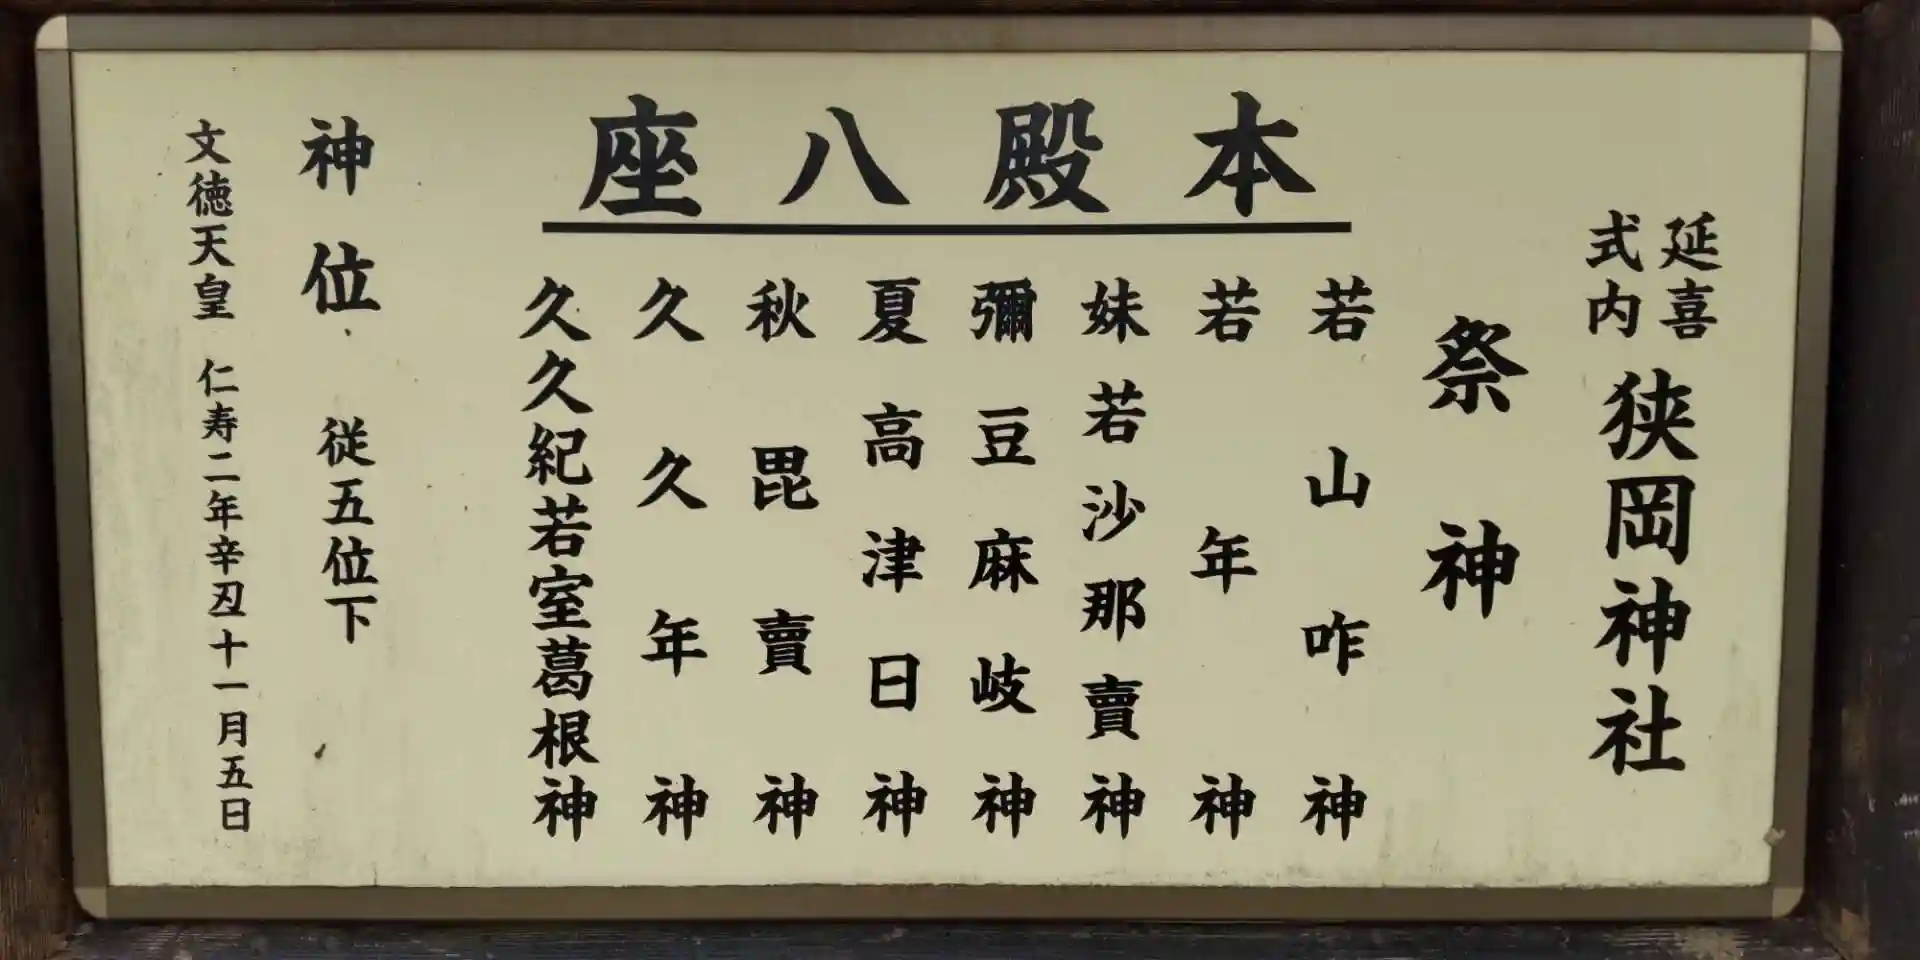 延喜
式内
狭岡神社
祭神
本殿八座
若山咋神
若年神
妹若沙那賣神
彌豆麻岐神
夏高津日神
秋毘賣神
久久年神
久久紀若室葛根神
神位 従五位下
文徳天皇 仁寿二年辛丑十一月五日